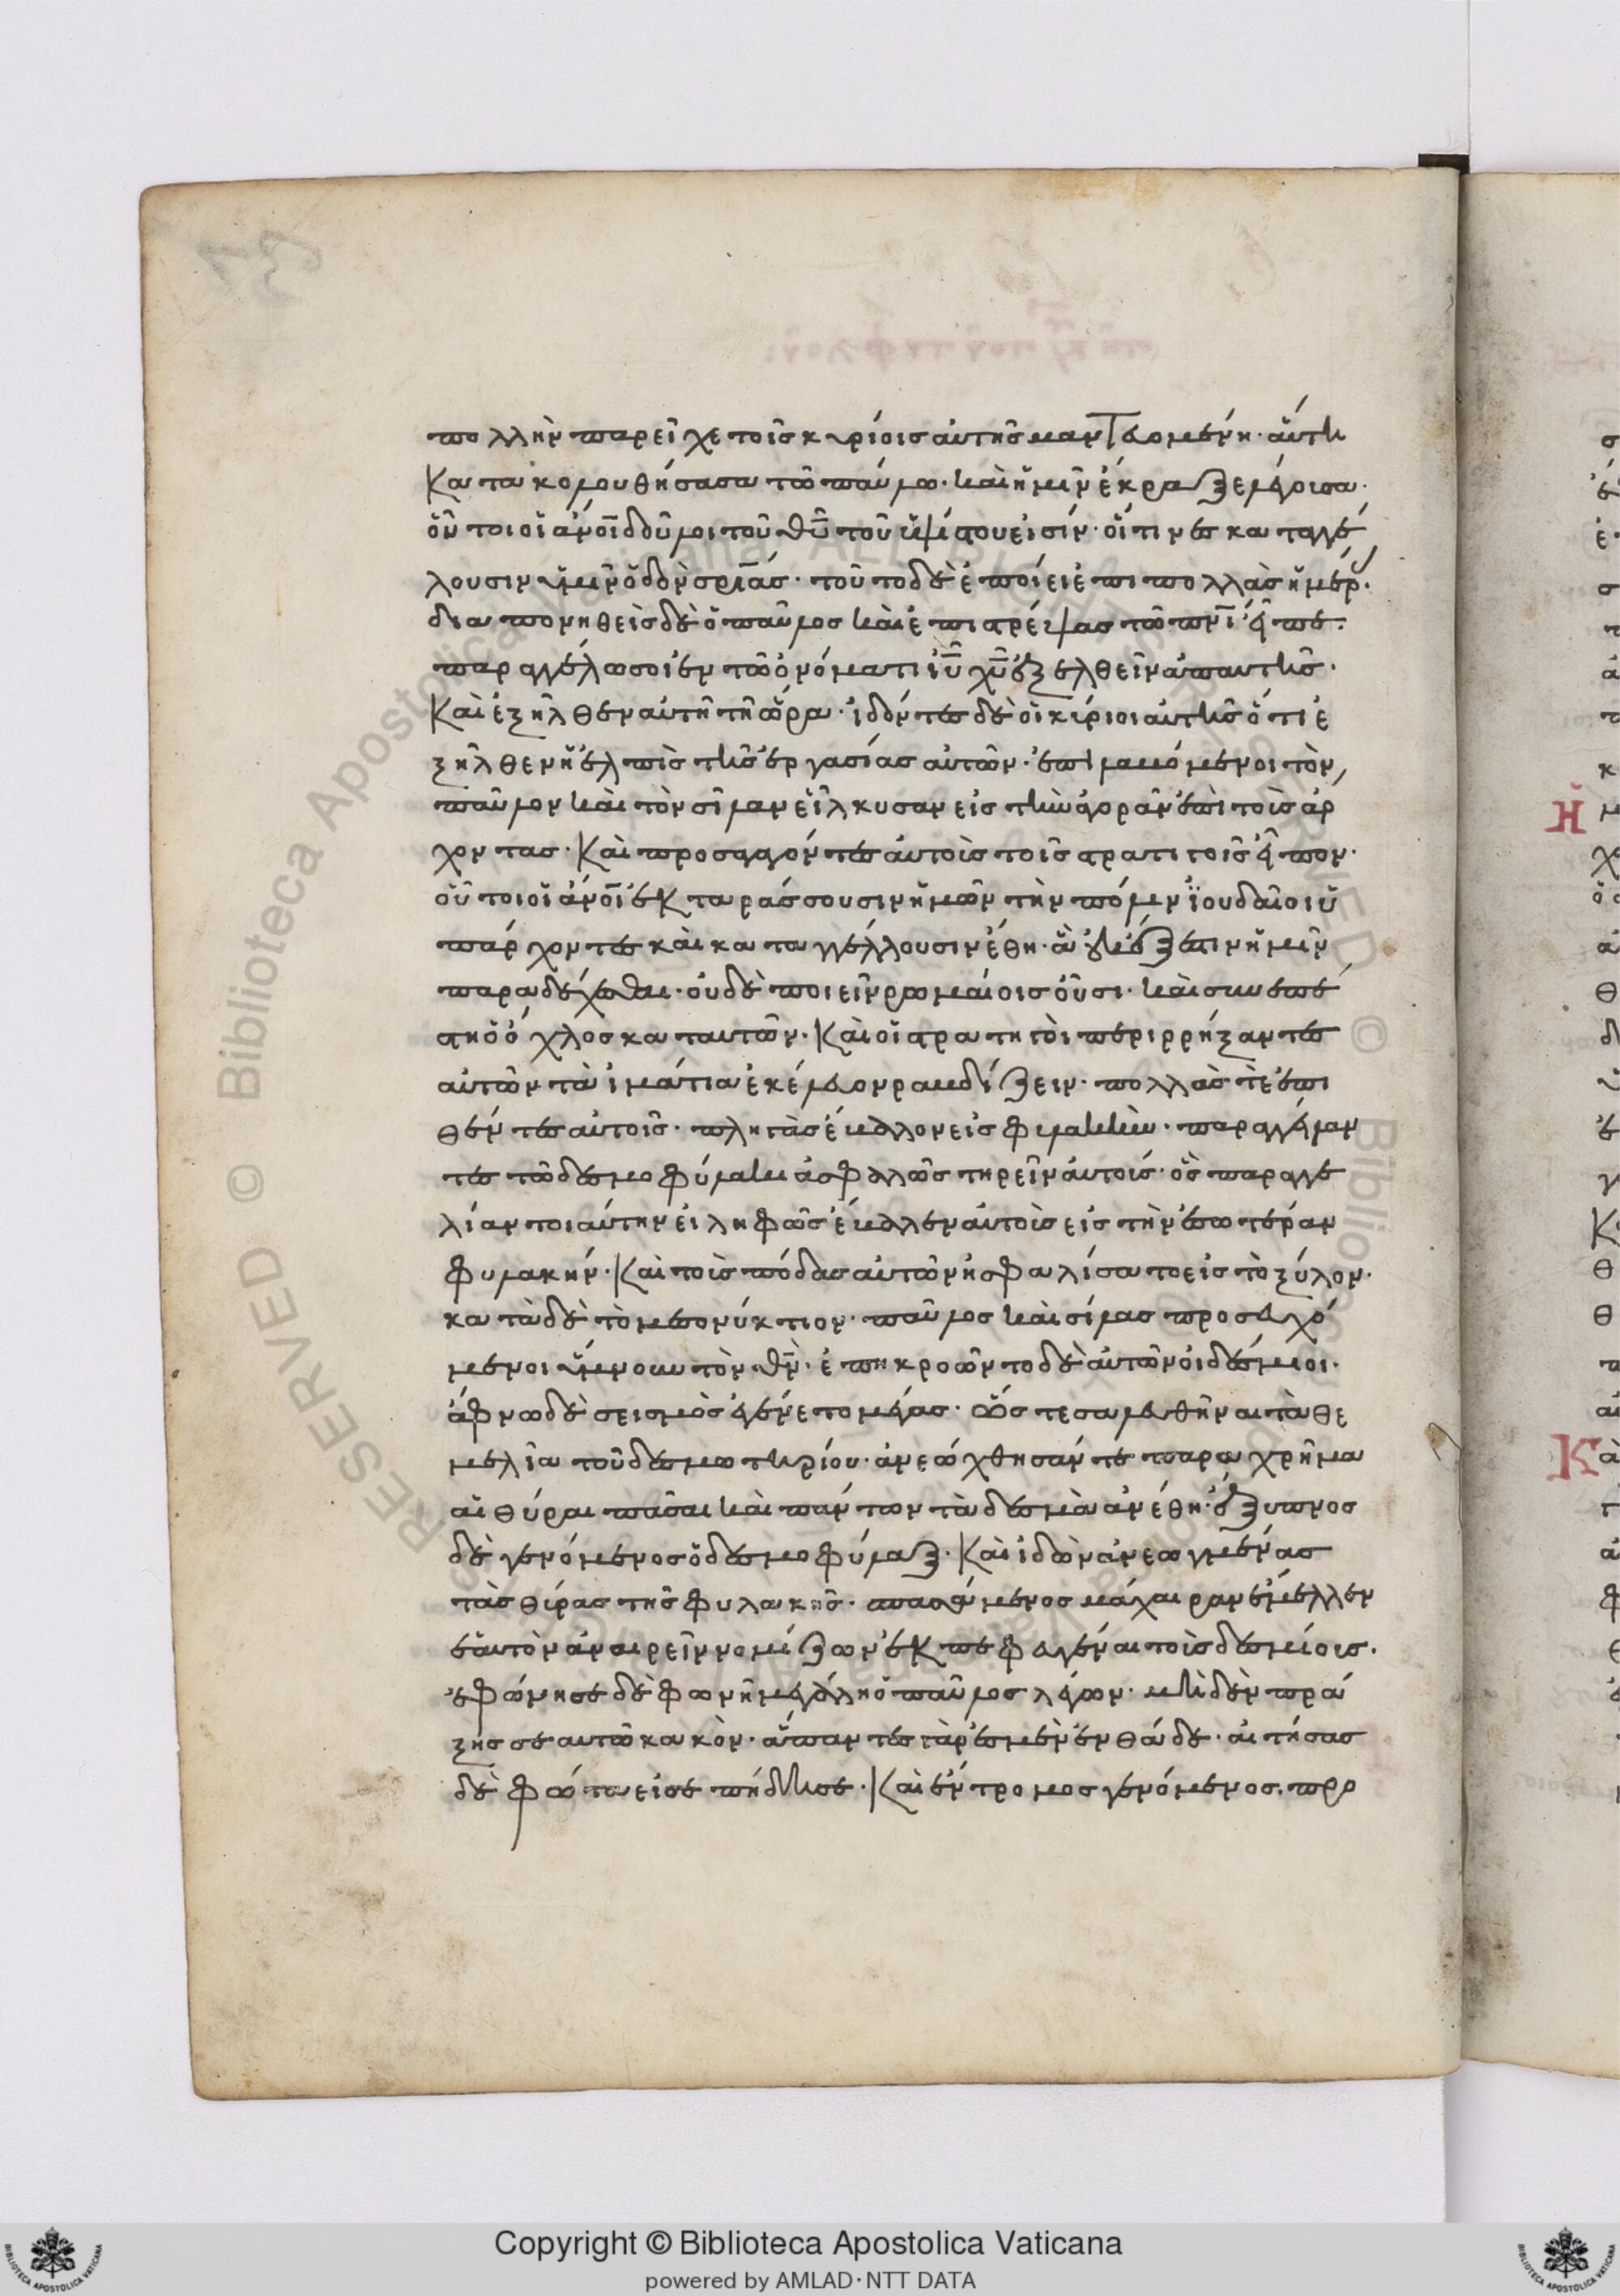 πολλὴν παρεῖχε τοῖς κυρίοις αὐτῆς μαντευομένη· αὕτη
Κατακολουθήσασα τῶ παύλω· καὶ ἡμῖν ἔκραζε λέγουσα·
οὗτοι οἱ ἄνοι δοῦλοι τοῦ θῦ τοῦ ὑψίστου εἰσίν· οἵτινες καταγγέ
λουσιν ὑμῖν ὁδὸν σριας· τοῦτο δὲ ἐποίει ἐπι πολλὰς ἡμέρ·
διαπονηθεὶς δὲ ὁ παῦλος καὶ ἐπιστρέψας τῶ πνι εἶπε·
παραγγέλω σοι ἐν τῶ ὀνόματι ἰῦ χῦ ἐξελθεῖν ἀπ αυτῆς·
Καὶ ἐξῆλθεν αὐτῆ τῆ ὥρα· ἰδόντες δὲ οἱ κύριοι αὐτῆς ὅτι ἐ
ξῆλθεν ἡ ἐλπὶς τῆς ἐργασίας αὐτῶν· ἐπιλαβόμενοι τὸν
παῦλον καὶ τὸν σίλαν εἵλκυσαν εἰς τὴν ἀγορὰν ἐπὶ τοὺς ἄρ
χοντας· Καὶ προσαγαγόντες αὐτοὺς τοῖς στρατηγοῖς εἶπον·
οὗτοι οἱ ἄνοι ἐκταράσσουσιν ἡμῶν τὴν πόλιν ἰουδαῖοι ὑ
πάρχοντες καὶ καταγγέλλουσιν ἔθη· ἃ οὐκ ἔξεστιν ἡμῖν
παραδέχεσθαι· οὐδὲ ποιεῖν ρωμαίοις οὖσι· καὶ συνεπέ
στη ὁ ὄχλος κατ αυτῶν· Καὶ οἱ στρατηγοὶ περιρρήξαντες
αὐτῶν τὰ ἱμάτια ἐκέλευον ραβδίζειν· πολλὰς τὲ ἐπι
θέντες αὐτοῖς· πληγὰς ἔβαλλον εἰς φυλακὴν· παραγγείλαν
τες τῶ δεσμοφύλακι ἀσφαλῶς τηρεῖν αὐτούς· ὃς παραγγε
λίαν τοιαύτην εἰληφὼς ἔβαλεν αὐτοὺς εἰς τὴν ἐσωτέραν
φυλακήν· Καὶ τοὺς πόδας αὐτῶν ἠσφαλίσατο εἰς τὸ ξύλον·
κατὰ δὲ τὸ μεσονύκτιον· παῦλος καὶ σίλας προσευχό
μενοι ὕμνουν τὸν θν· ἐπηκροῶντο δὲ αὐτῶν οἱ δέσμιοι·
ἄφνω δὲ σεισμὸς ἐγένετο μέγας· ὥστε σαλευθῆναι τὰ θε
μέλια τοῦ δεσμωτηρίου· ἀνεώχθησάν τε παραχρῆμα
αἱ θύραι πᾶσαι καὶ πάντων τὰ δεσμὰ ἀνέθη· ἔξυπνος
δὲ γενόμενος ὁ δεσμοφύλαξ· Καὶ ἰδὼν ἀνεωγμένας
τὰς θύρας τῆς φυλακῆς· σπασάμενος μάχαιραν ἔμελλεν
ἑαυτὸν ἀναιρεῖν νομίζων ἐκπεφευγέναι τοὺς δεσμίους·
ἐφώνησε δὲ φωνῆ μεγάλη ὁ παῦλος λέγων· μηδὲν πρά
ξης σεαυτῶ κακὸν· ἅπαντες γὰρ ἐσμὲν ἐνθάδε· αἰτήσας
δὲ φῶτα εἰσεπήδησε· Καὶ ἔντρομος γενόμενος· προ